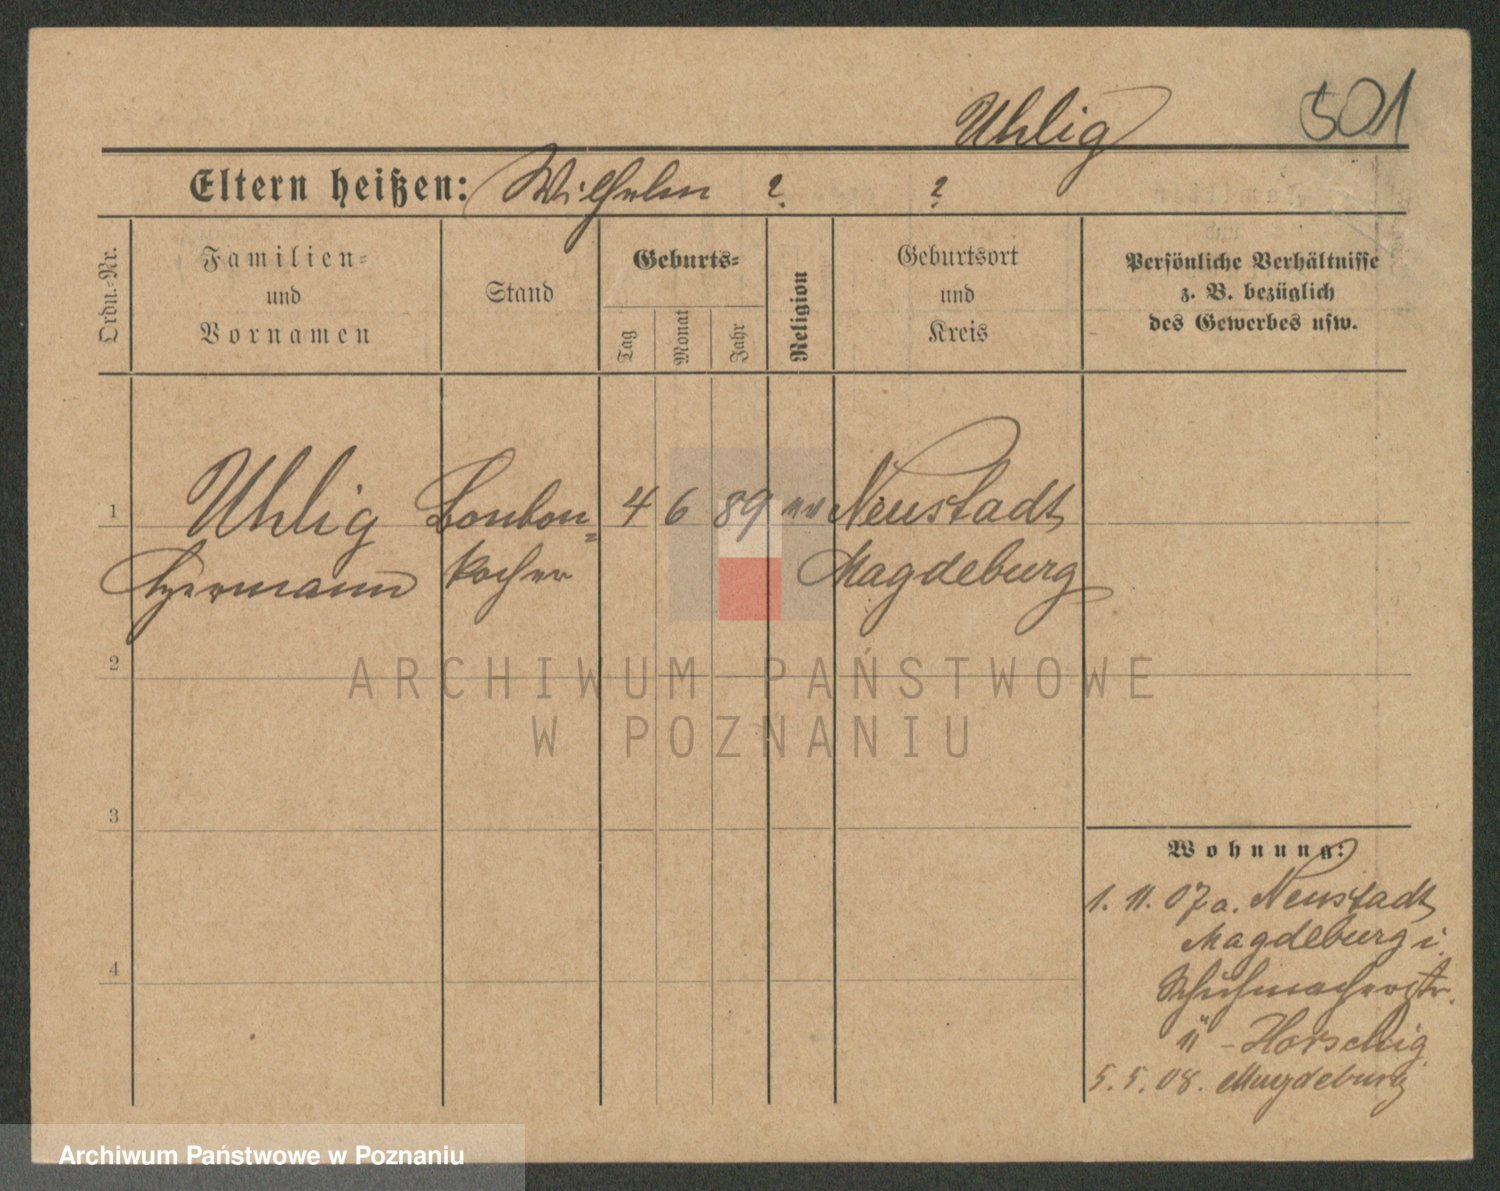 Uhlig 501
Eltern heißen: Wilhelm ? ?
Ordn.-Nr.
Familien-
und
Vornamen
Stand
Geburts-
Tag
Monat
Jahr
Religion
Geburtsort
und
Kreis
Persönliche Verhältnisse
z. B. bezüglich
des Gewerbes usw.
1 Uhlig Bonbon= 4 6 89 ev Neustadt
Hermann kocher Magdeburg
2
3
4
Wohnung:
1. 11. 07 a. Neustadt
Magdeburg i.
Schuhmacherstr.
11 - Horschig
5. 5. 08. Magdeburg
ARCHIWUM PAŃSTWOWE
W POZNANIU
Archiwum Państwowe w Poznaniu